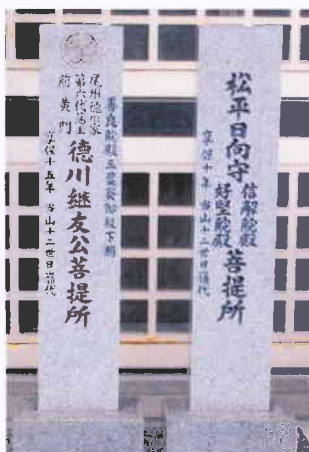 松平日向守
信解院殿
好堅院殿
菩提所
享保十年 当山十二世日嶺代
尾州徳川家
第六代藩主
前黄門
徳川継友公菩提所
享保十五年 当山十二世日嶺代